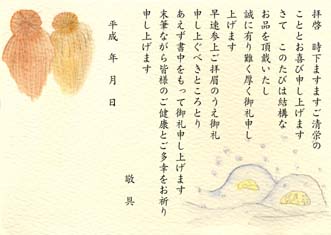 拝啓　時下ますますご清栄の
こととお喜び申し上げます
さて　このたびは結構な
お品を頂戴いたし
誠に有り難く厚く御礼申し
上げます
早速参上ご拝眉のうえ御礼
申し上ぐべきところとり
あえず書中をもって御礼申し上げます
末筆ながら皆様のご健康とご多幸をお祈り
申し上げます
敬具
平成　年　月　日